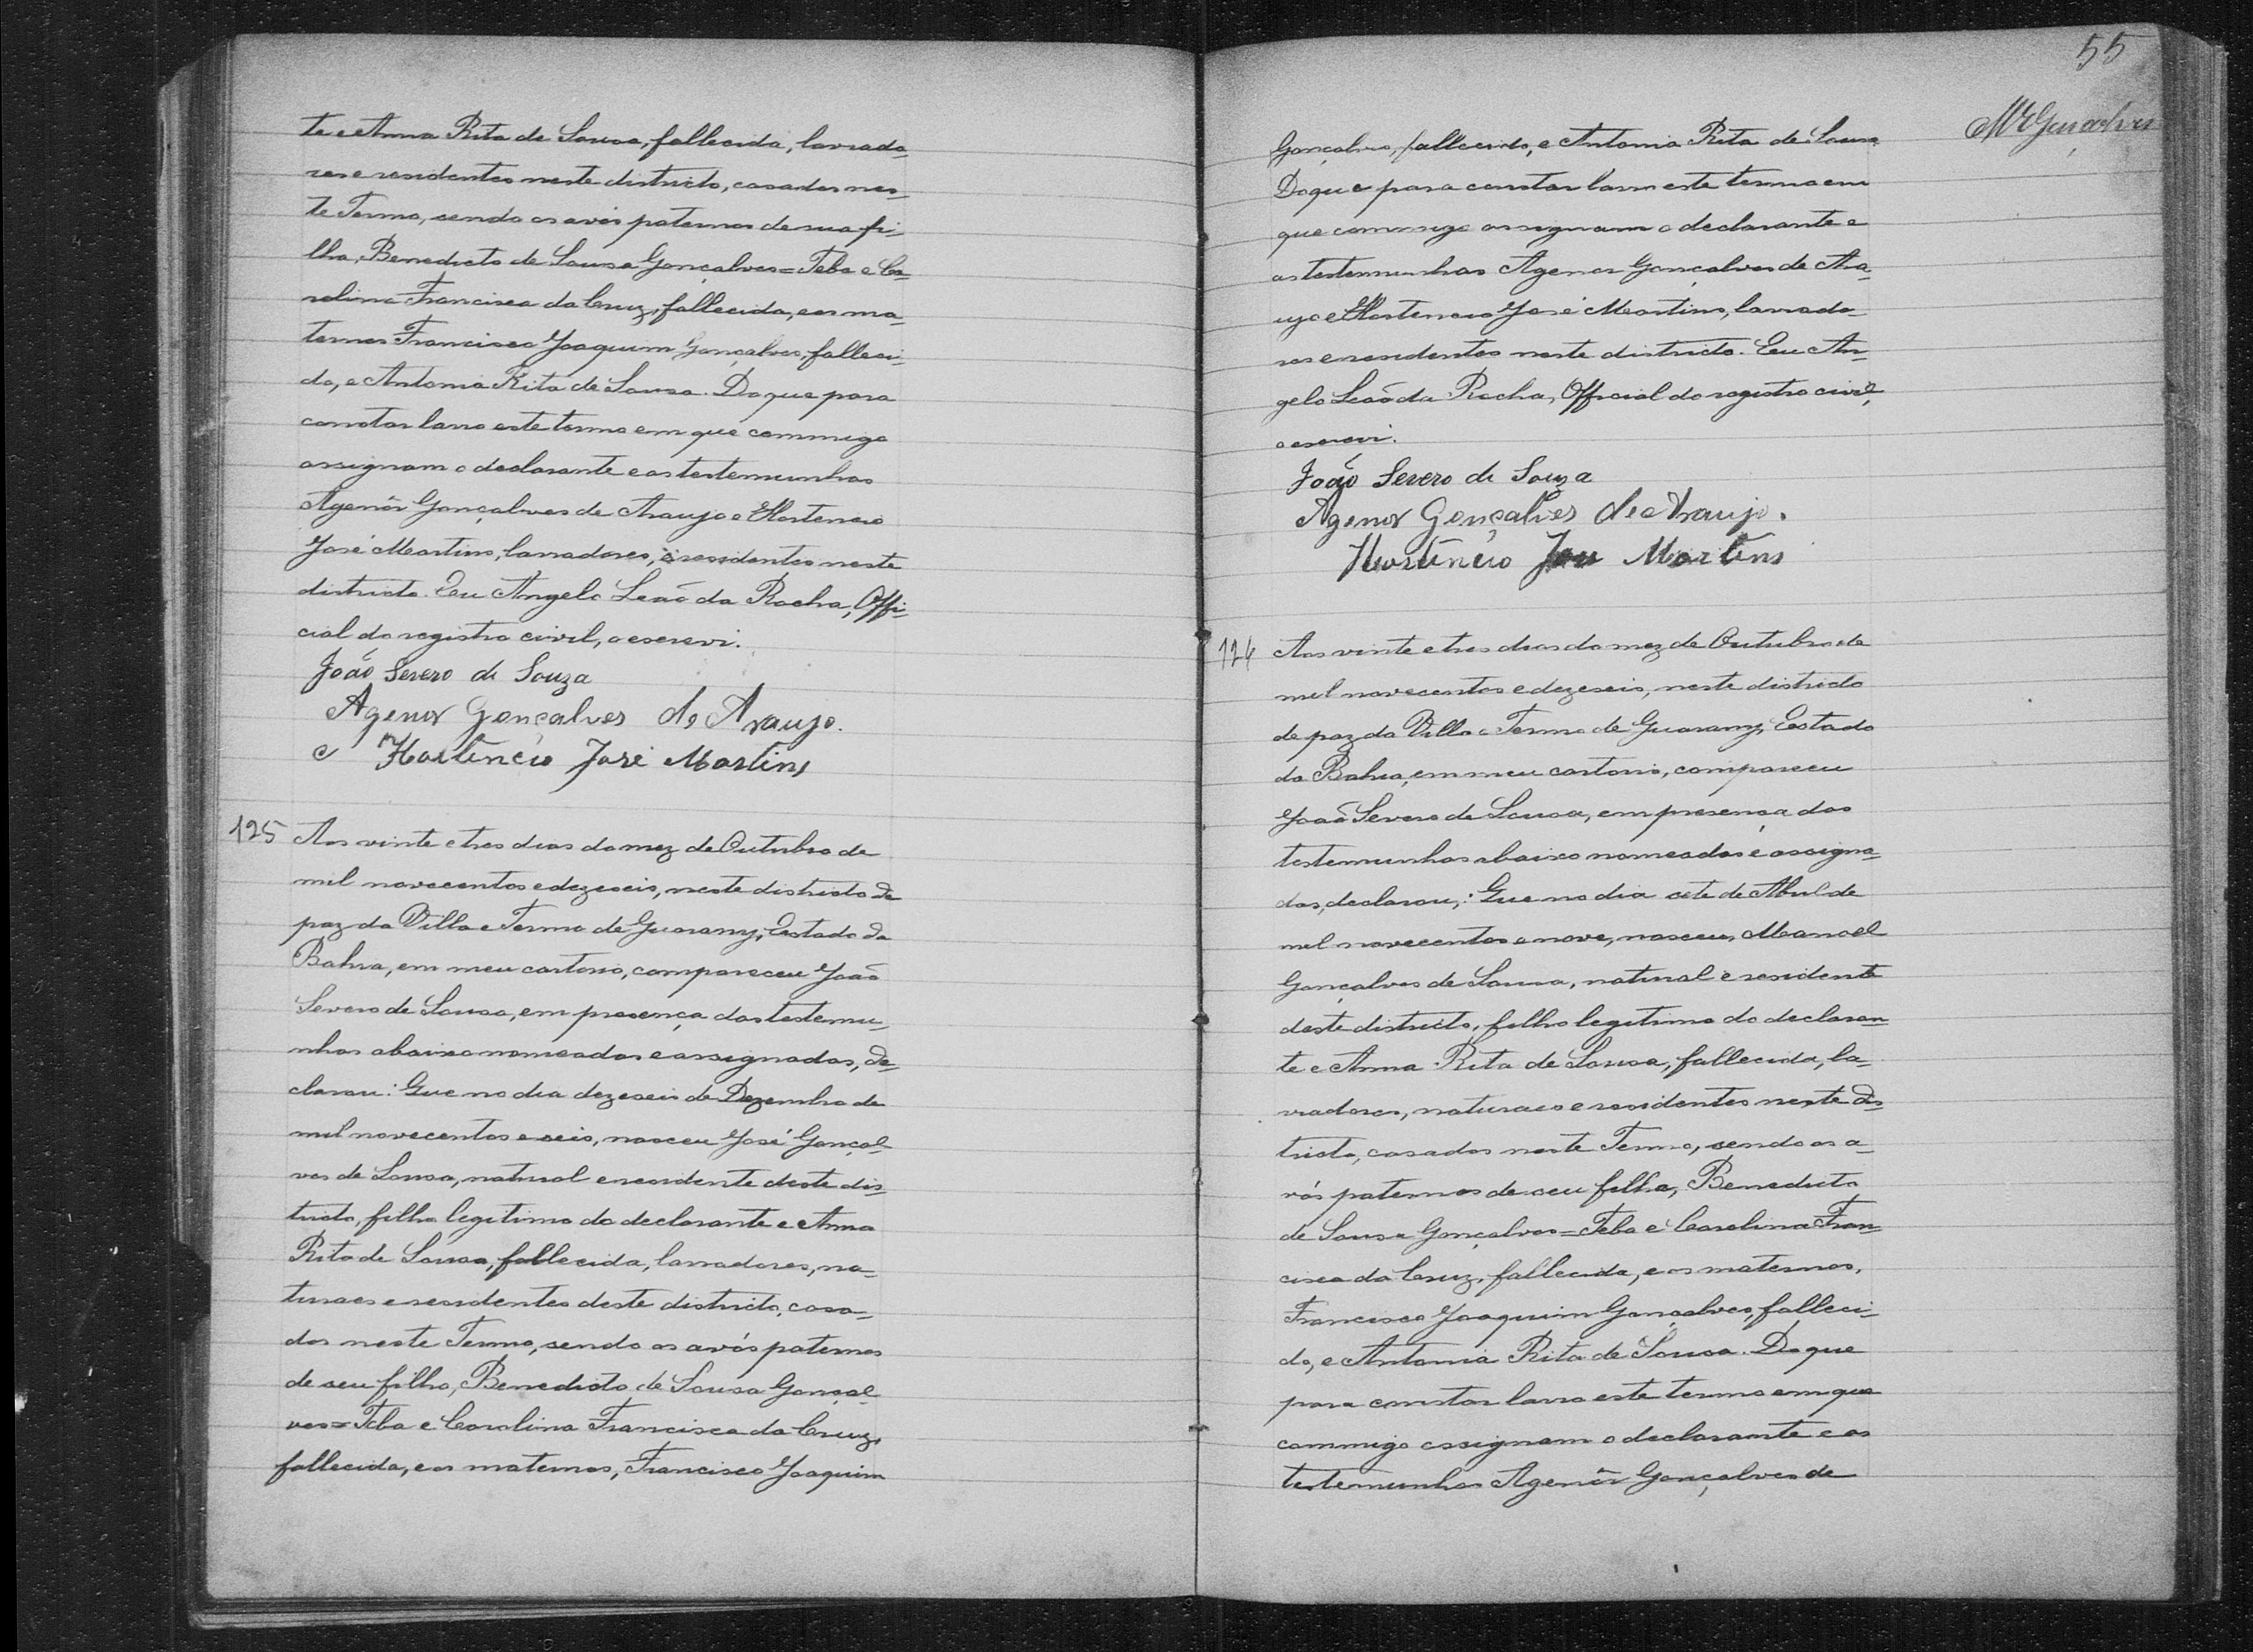 te e Anna Rita de Sousa, fallecida, lavrado-
res e residentes neste districto, casados nes-
te Termo, sendo os avós paternos de sua fi-
lha, Benedicto de Sousa Gonçalves = Teba e Ca-
rolina Francisca da Cruz, fallecida, e os ma-
ternos Francisco Joaquim Gonçalves, falleci-
do, e Antonia Rita de Sousa. Do que para
constar lavro este termo em que commigo
assignam o declarante e as testemunhas
Agenôr Gonçalves de Araujo e Hortencio
José Martins, lavradores, e residentes neste
districto. Eu Angelo Leão da Rocha, Offi-
cial do registro civil, o escrevi.
João Severo de Souza
Agenor Gonçalves de Araujo.
e Hortêncio José Martins
125 Aos vinte e tres dias do mez de Outubro de
mil novecentos e dezeseis, neste districto de
paz da Villa e Termo de Guarany, Estado da
Bahia, em meu cartorio, compareceu João
Severo de Sousa, em presença das testemu-
nhas abaixo nomeadas e assignadas, de-
clarou: Que no dia dezeseis de Dezembro de
mil novecentos e seis, nasceu José Gonçal-
ves de Sousa, natural e residente deste dis-
tricto, filho legitimo do declarante e Anna
Rita de Sousa, fallecida, lavradores, na-
turaes e residentes deste districto, casa-
dos neste Termo, sendo os avós paternos
de seu filho, Benedicto de Sousa Gonçal-
ves = Teba e Carolina Francisca da Cruz,
fallecida, e os maternos, Francisco Joaquim
55
Gonçalves, fallecido, e Antonia Rita de Sousa.
Do que para constar lavro este termo em
que commigo assignam o declarante e
as testemunhas Agenor Gonçalves de Ara-
ujo e Hortencio José Martins, lavrado-
res e residentes neste districto. Eu An-
gelo Leão da Rocha, Official do registro civil,
o escrevi.
João Severo de Souza
Agenor Gonçalves de Araujo.
Hortêncio José Martins
126 Aos vinte e tres dias do mez de Outubro de
mil novecentos e dezeseis, neste districto
de paz da Villa e Termo de Guarany, Estado
da Bahia, em meu cartorio, compareceu
João Severo de Sousa, em presença das
testemunhas abaixo nomeadas e assigna-
das, declarou,: Que no dia sete de Abril de
mil novecentos e nove, nasceu, Manoel
Gonçalves de Sousa, natural e residente
deste districto, filho legitimo do declaran-
te e Anna Rita de Sousa, fallecida, la-
vradores, naturaes e residentes neste dis-
tricto, casados neste Termo, sendo os a-
vós paternos de seu filho, Benedicto
de Sousa Gonçalves = Teba e Carolina Fran-
cisca da Cruz, fallecida, e os maternos,
Francisco Joaquim Gonçalves, falleci-
do, e Antonia Rita de Sousa. Do que
para constar lavro este termo em que
commigo assignam o declarante e as
testemunhas Agenôr Gonçalves de